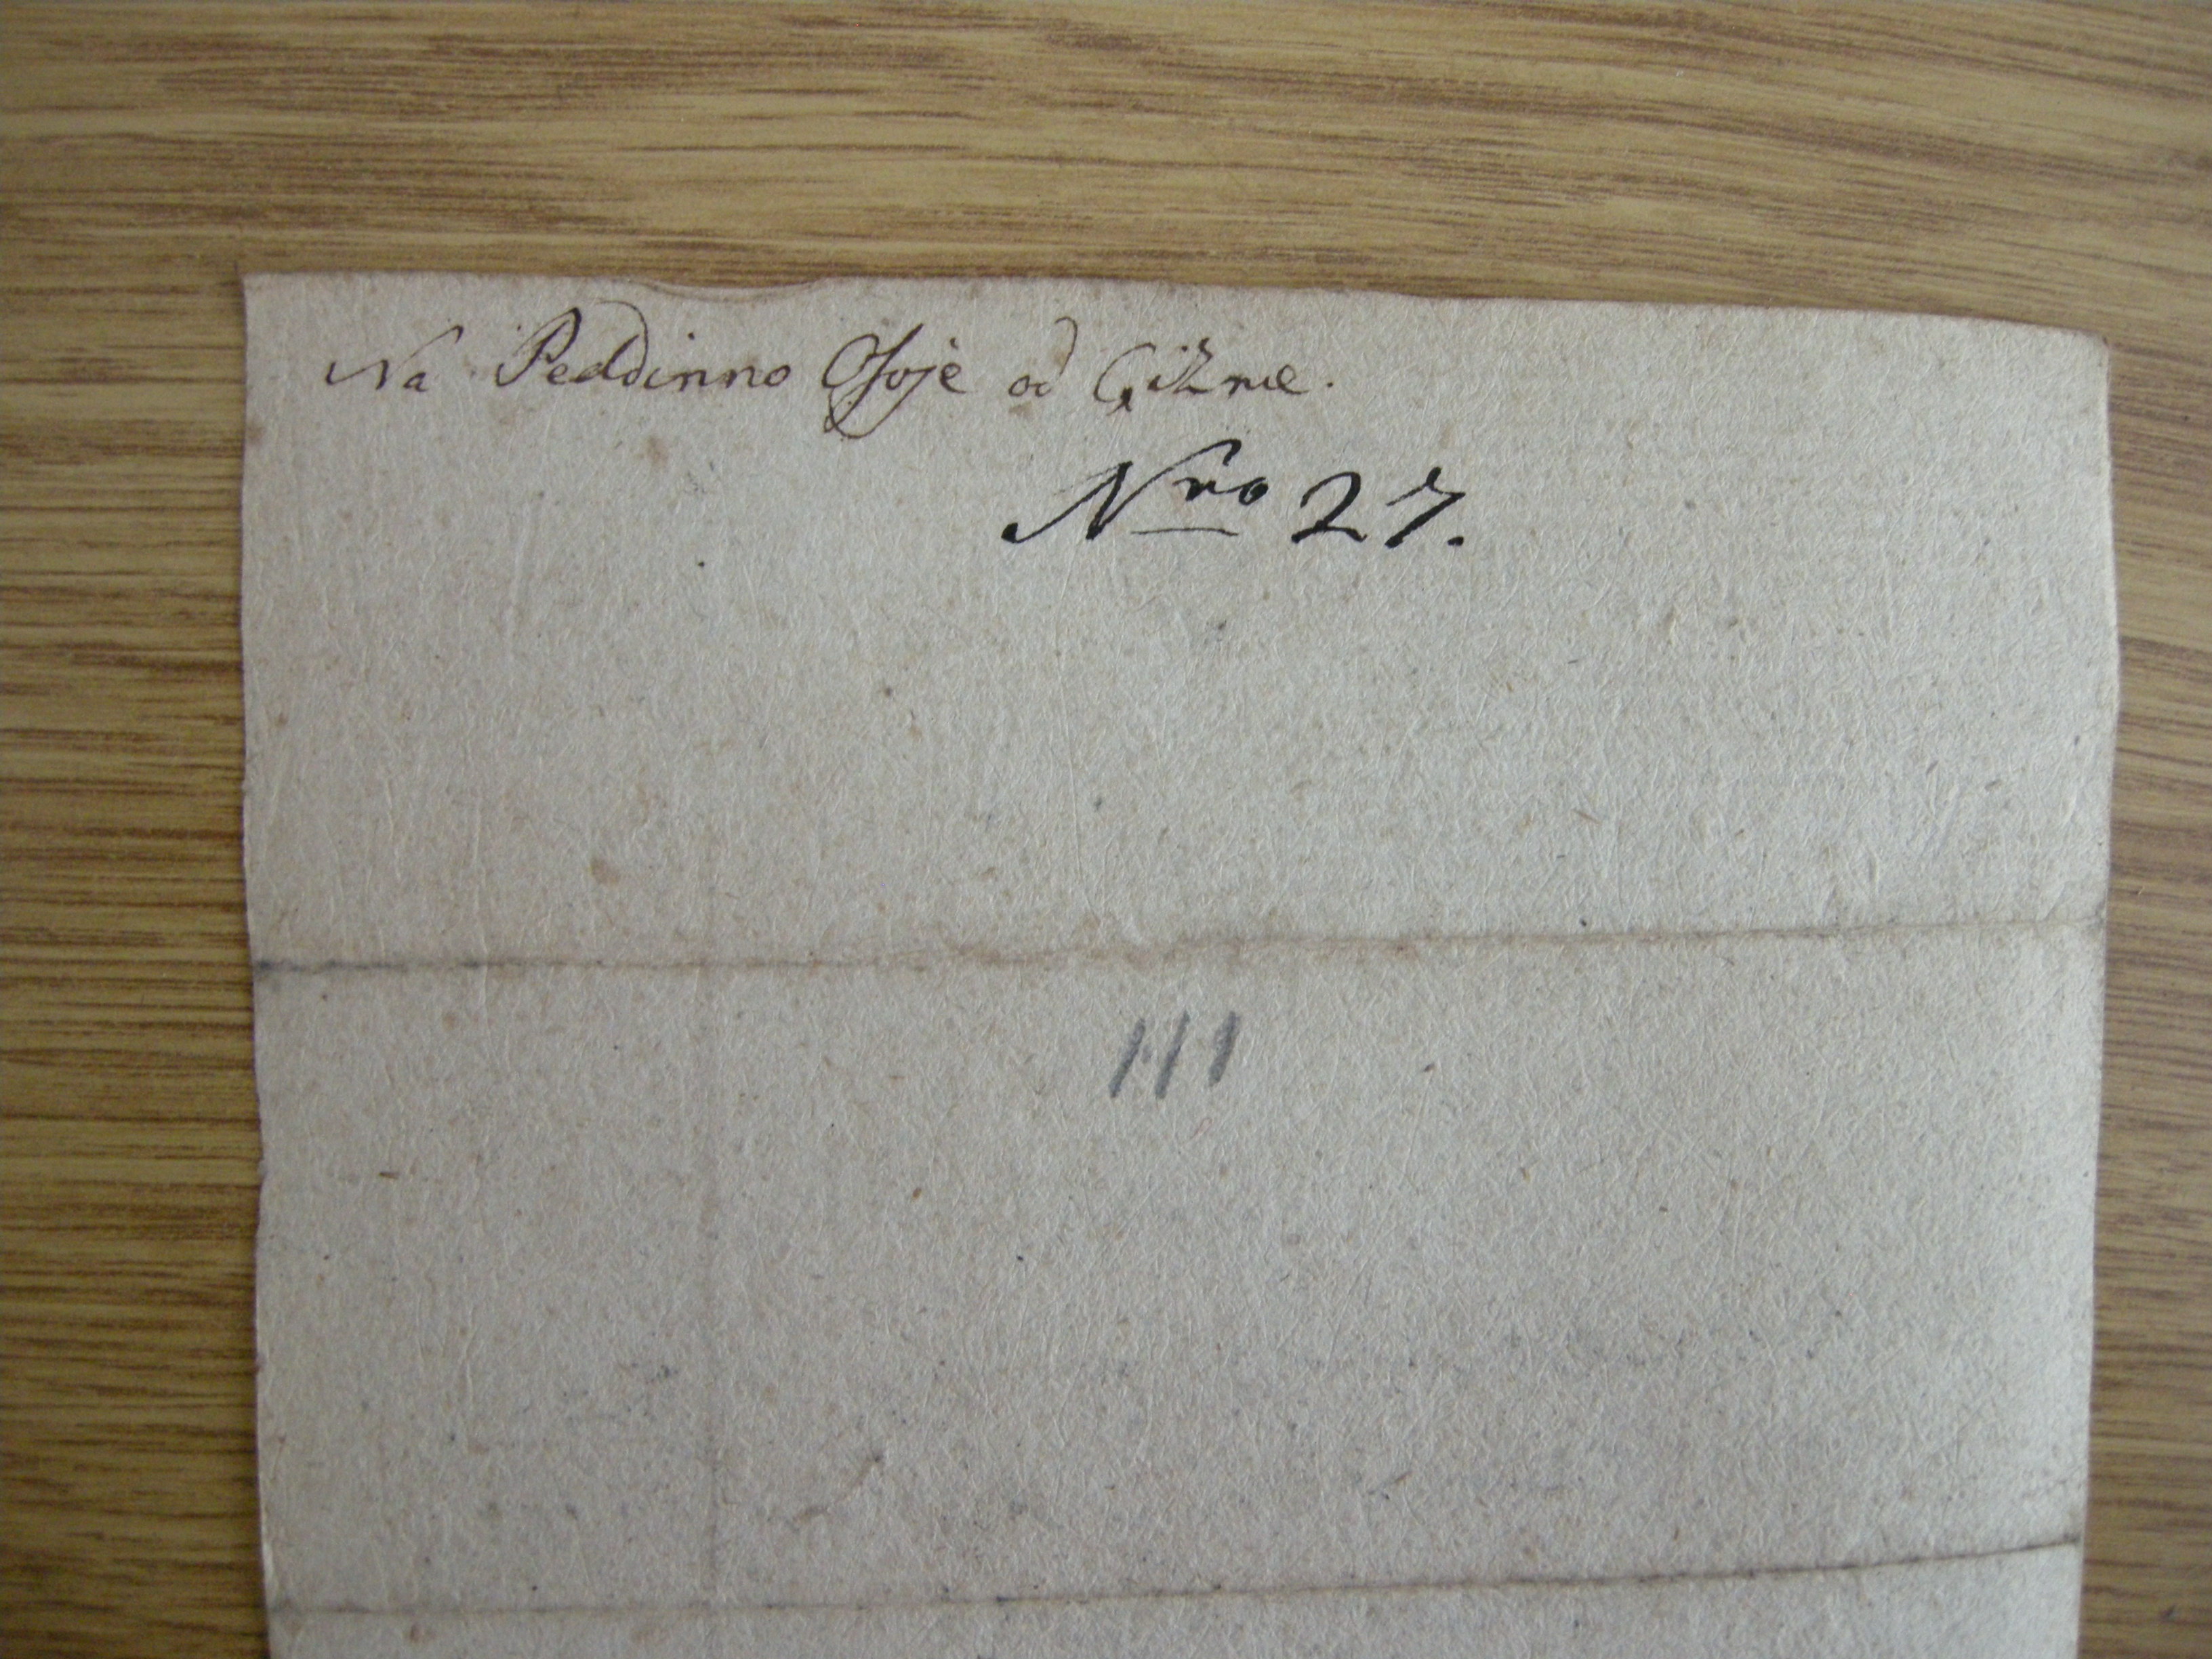 Na Peldinno Osoje od Gižme.
Nro 27.
111